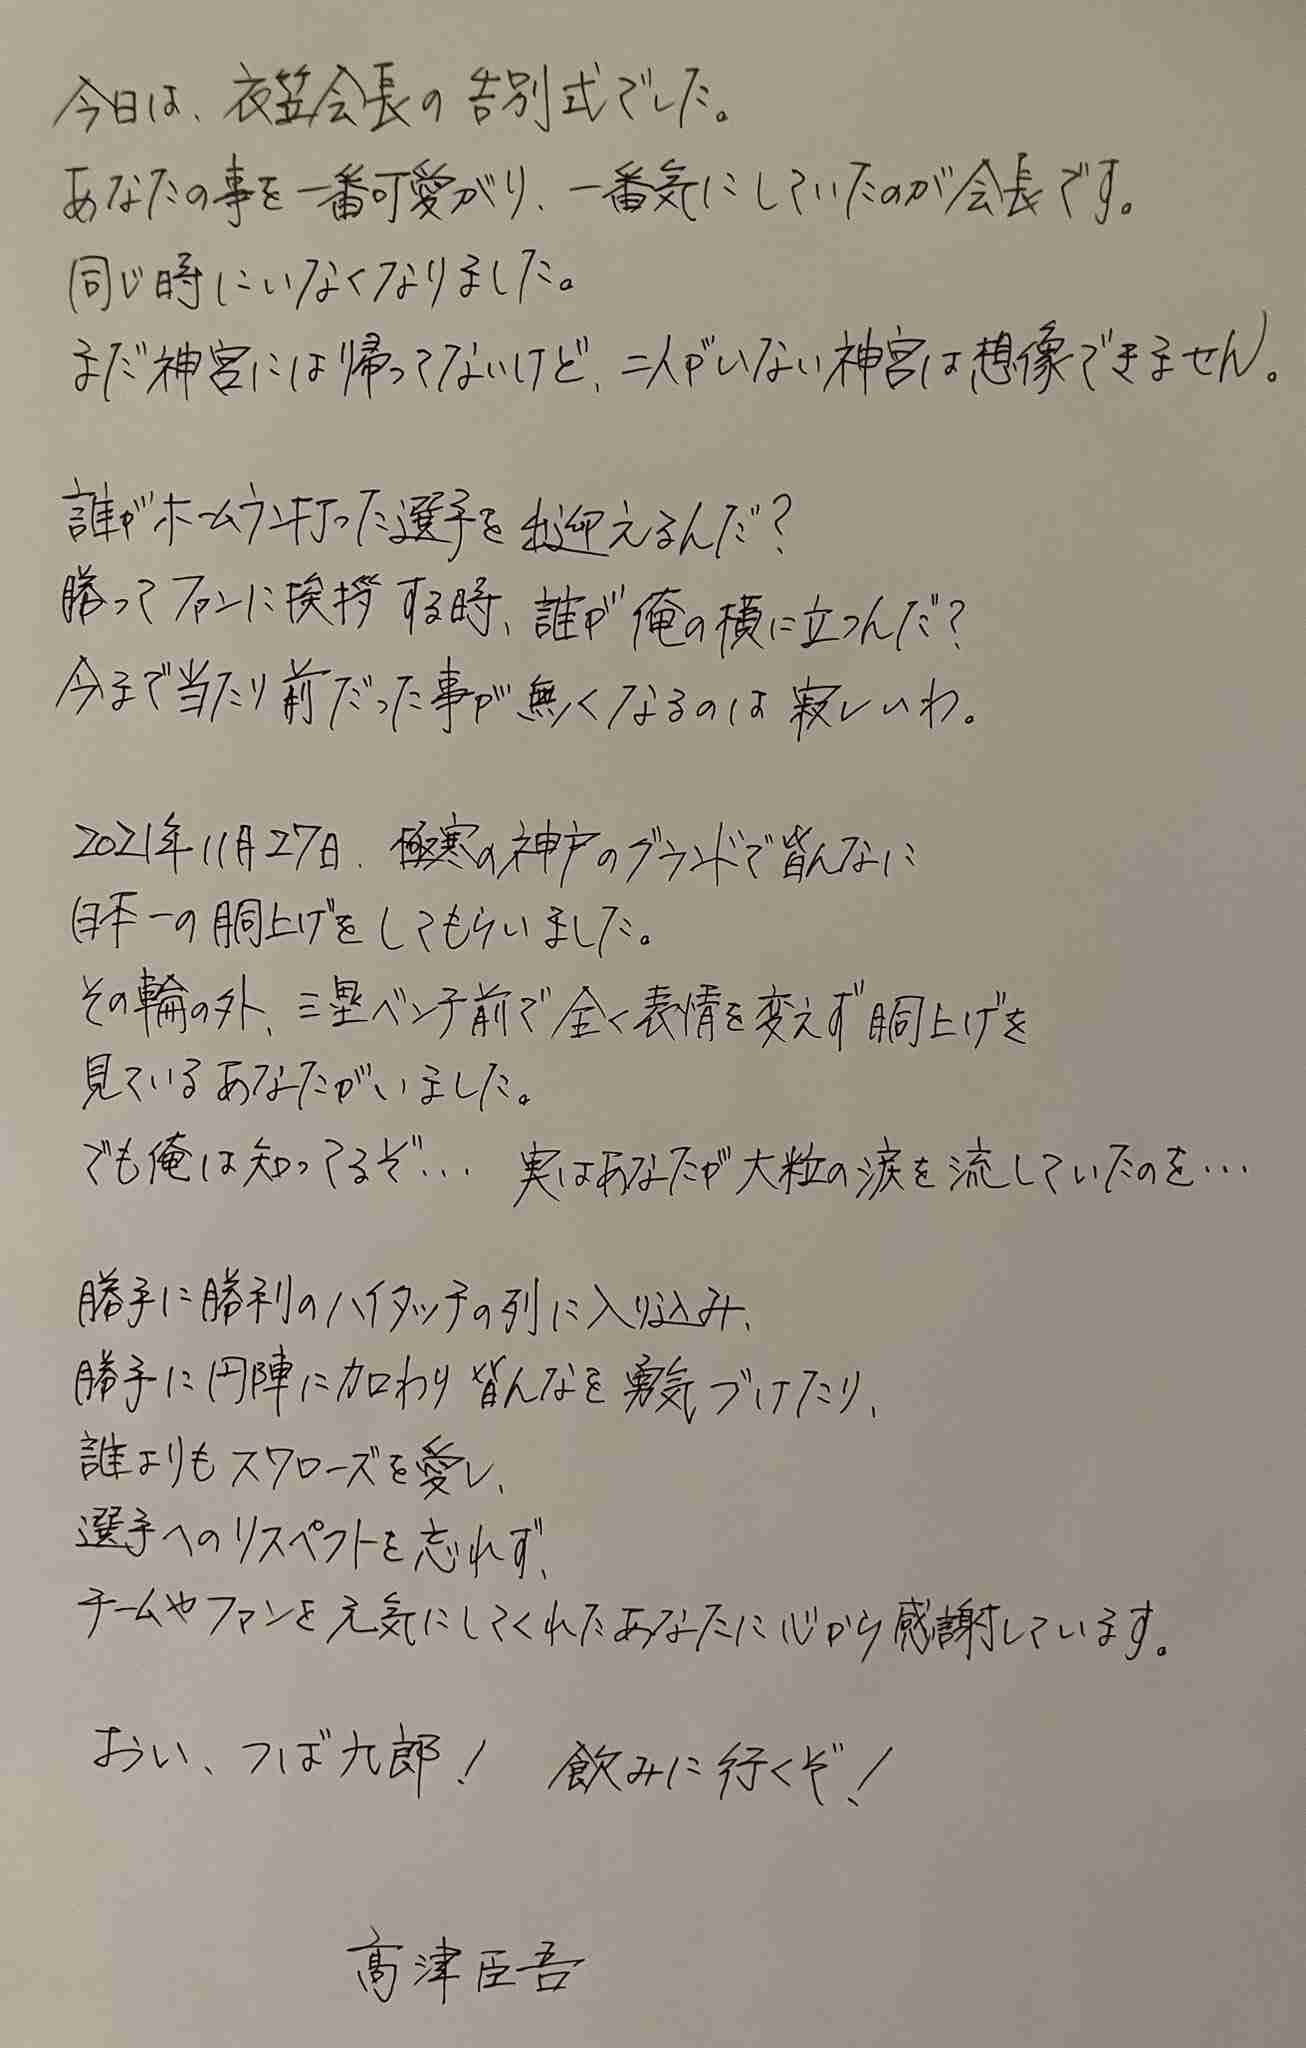 今日は、衣笠会長の告別式でした。
あなたの事を一番可愛がり、一番気にしていたのが会長です。
同じ時にいなくなりました。
まだ神宮には帰ってないけど、二人がいない神宮は想像できません。
誰がホームラン打った選手を出迎えるんだ?
勝ってファンに挨拶する時、誰が俺の横に立つんだ?
今まで当たり前だった事が無くなるのは寂しいわ。
2021年11月27日、極寒の神戸のグランドで皆んなに
日本一の胴上げをしてもらいました。
その輪の外、三塁ベンチ前で全く表情を変えず胴上げを
見ているあなたがいました。
でも俺は知ってるぞ… 実はあなたが大粒の涙を流していたのを…
勝手に勝利のハイタッチの列に入り込み、
勝手に円陣に加わり皆んなを勇気づけたり、
誰よりもスワローズを愛し、
選手へのリスペクトを忘れず、
チームやファンを元気にしてくれたあなたに心から感謝しています。
おい、つば九郎! 飲みに行くぞ!
髙津臣吾